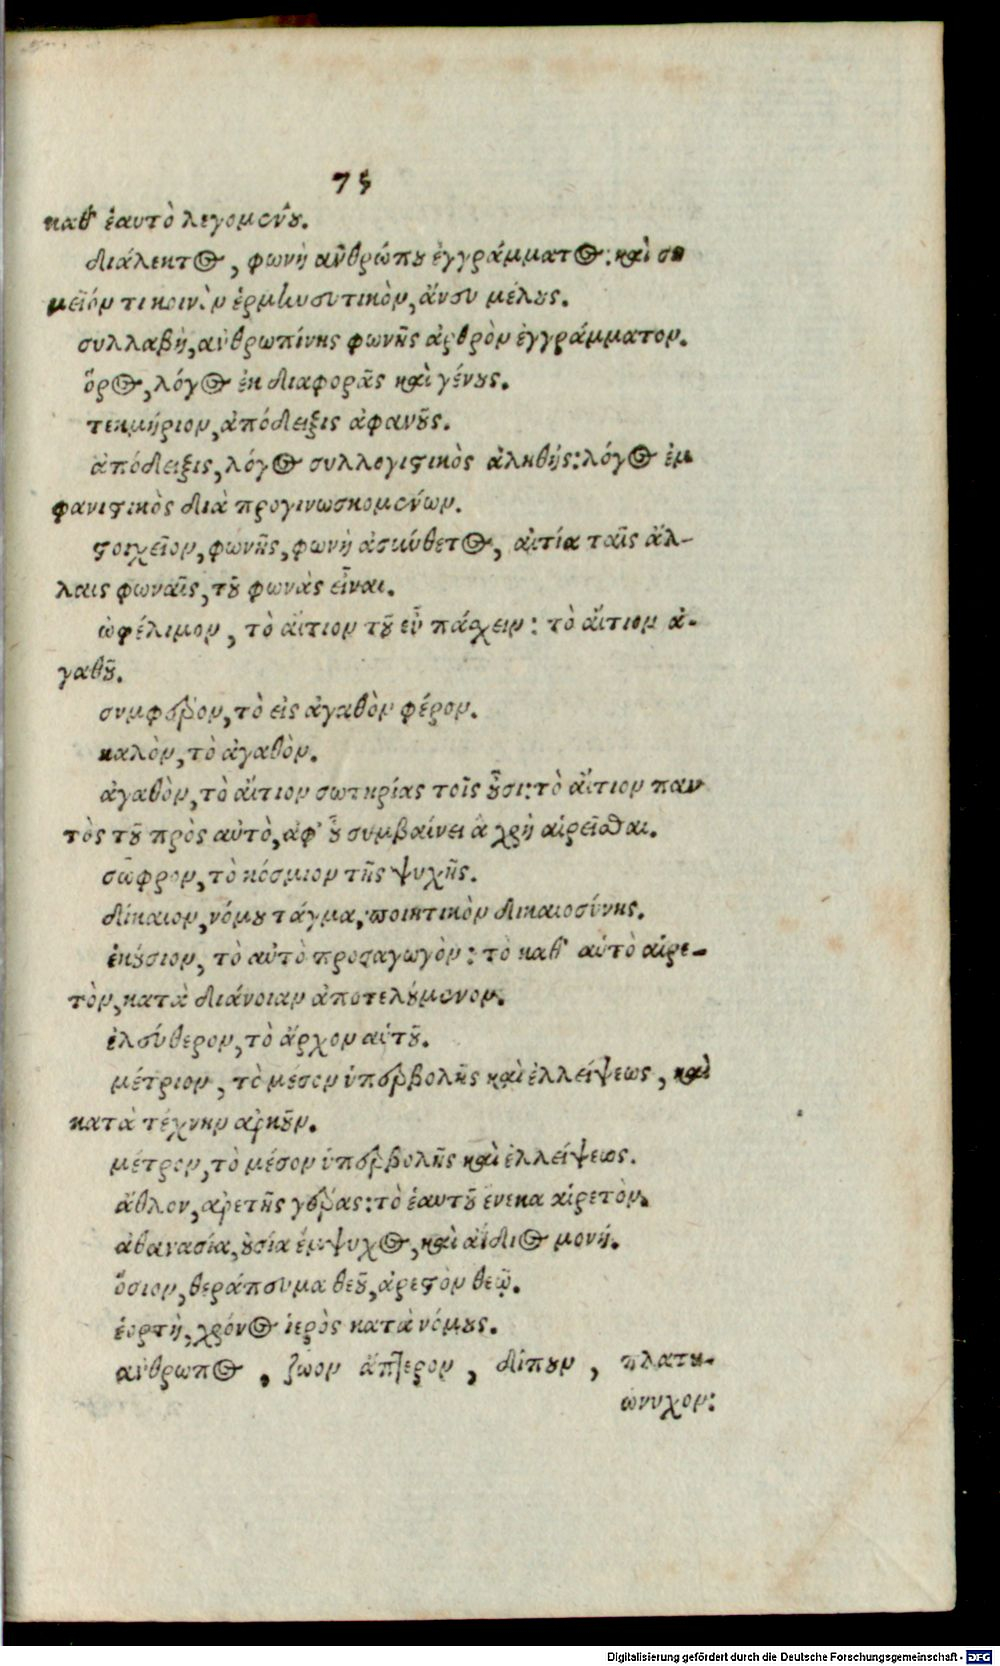 75
καθ' ἑαυτὸ λεγομένου.
διάλεκτος, φωνὴ ἀνθρώπου ἐγγράμματος: καὶ ση
μεῖόν τι κοινὸν ἑρμηνευτικὸν, ἄνευ μέλους.
συλλαβὴ, ἀνθρωπίνης φωνῆς ἀρθρὸν ἐγγράμματον.
ὅρος, λόγος ἐκ διαφορᾶς καὶ γένους.
τεκμήριον, ἀπόδειξις ἀφανοῦς.
ἀπόδειξις, λόγος συλλογιστικὸς ἀληθής: λόγος ἐμ
φανιστικὸς διὰ προγινωσκομένων.
στοιχεῖον, φωνῆς, φωνὴ ἀσύνθετος, αἰτία ταῖς ἄλ-
λαις φωναῖς, τοῦ φωνὰς εἶναι.
ὠφέλιμον, τὸ αἴτιον τοῦ εὖ πάσχειν: τὸ αἴτιον ἀ-
γαθοῦ.
συμφέρον, τὸ εἰς ἀγαθὸν φέρον.
καλὸν, τὸ ἀγαθὸν.
ἀγαθὸν, τὸ αἴτιον σωτηρίας τοῖς οὖσι: τὸ αἴτιον παν
τὸς τοῦ πρὸς αὐτὸ, ἀφ' οὗ συμβαίνει ἃ χρὴ αἱρεῖσθαι.
σῶφρον, τὸ κόσμιον τῆς ψυχῆς.
δίκαιον, νόμου τάγμα, ποιητικὸν δικαιοσύνης.
ἑκούσιον, τὸ αὐτὸ προσαγωγὸν: τὸ καθ' αὑτὸ αἱρε-
τὸν, κατὰ διάνοιαν ἀποτελούμενον.
ἐλεύθερον, τὸ ἄρχον αὑτοῦ.
μέτριον, τὸ μέσον ὑπερβολῆς καὶ ἐλλείψεως, καὶ
κατὰ τέχνην ἀρκοῦν.
μέτρον, τὸ μέσον ὑπερβολῆς καὶ ἐλλείψεως.
ἆθλον, ἀρετῆς γέρας: τὸ ἑαυτοῦ ἕνεκα αἱρετὸν.
ἀθανασία, οὐσία ἔμψυχος, καὶ ἀΐδιος μονή.
ὅσιον, θεράπευμα θεοῦ, ἀρεστὸν θεῷ.
ἑορτὴ, χρόνος ἱερὸς κατὰ νόμους.
ἄνθρωπος, ζῶον ἄπτερον, δίπουν, πλατυ-
ώνυχον:
Digitalisierung gefördert durch die Deutsche Forschungsgemeinschaft - DFG